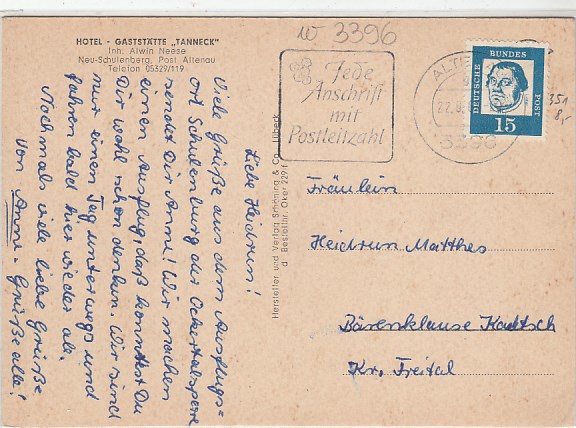 HOTEL - GASTSTÄTTE „TANNECK"
Inh. Alwin Neese
Neu-Schulenberg, Post Altenau
Telefon 05329/119
w 3396
Jede
Anschrift
mit
Postleitzahl
ALTE
22.8
3396
DEUTSCHE BUNDES POST
15
351
8,-
Liebe Heidrun!
Viele Grüße aus dem Ausflugs=
ort Schulenburg der Ockertalsperre
sendet Dir Anne! Wir machen
einen Ausflug, daß konntest Du
Dir wohl schon denken. Wir sind
nur einen Tag unterwegs und
fahren bald hier wieder ab.
Nochmals viele liebe Grüße
Von Anne - Grüße alle!
Hersteller und Verlag Schöning & Co., Lübeck
d Bestellnr. Oker 229 f
Fräulein
Heidrun Matthes
Bärenklause Kautsch
Kr. Freital